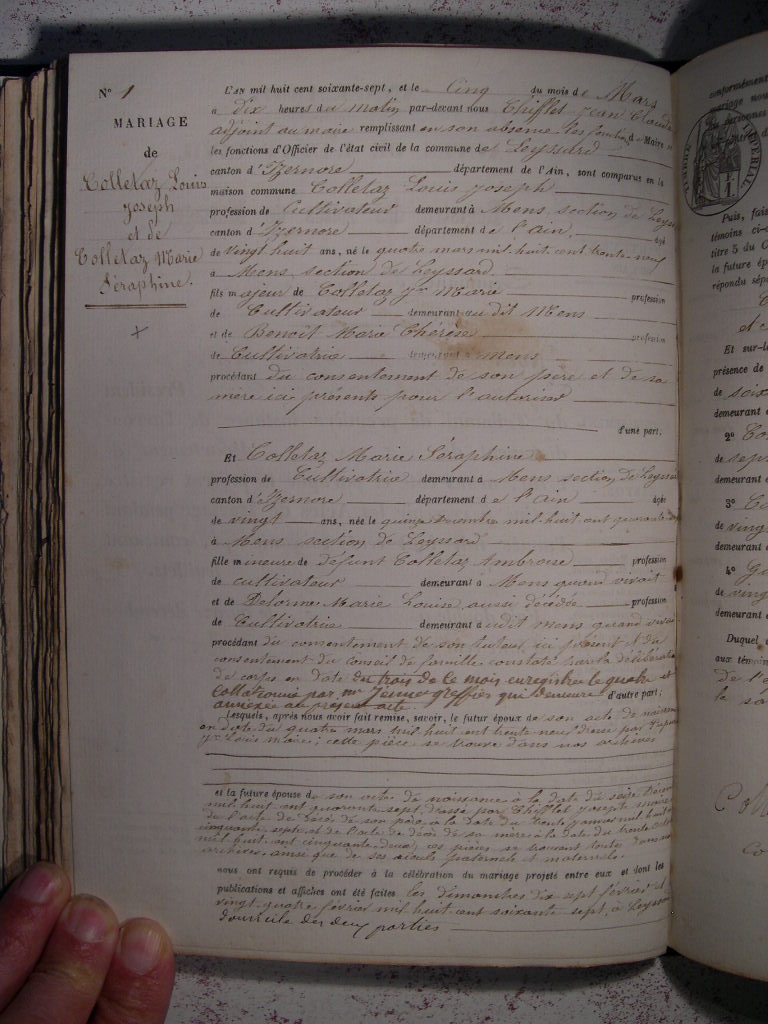 N° 1
MARIAGE
de
Colletaz Louis
Joseph
et de
Colletaz Marie
Séraphine.
L'AN mil huit cent soixante-sept, et le Cinq du mois de Mars
à dix heures du matin par-devant nous Chifflet Jean Claude
adjoint au maire remplissant en son absence les fonctions de Maire
les fonctions d'Officier de l'état civil de la commune de Leyssard
canton d'Izernore département de l'Ain, sont comparus en la
maison commune Colletaz Louis Joseph
profession de Cultivateur demeurant à Mens, section de Leyss
canton d'Izernore département de l'ain, âgé
de vingt huit ans, né le quatre mars mil huit cent trente neuf
à Mens, section de Leyssard.
fils majeur de Colletaz Jn Marie profession
de Cultivateur demeurant au dit Mens
et de Benoît Marie Thérèse profession
de Cultivatrice demeurant à Mens
procédant du consentement de son père et de sa
mère ici présents pour l'autoriser
d'une part.
Et Colletaz Marie Séraphine
profession de Cultivatrice demeurant à Mens section de Leyssa
canton d'Izernore département de l'ain âgée
de vingt ans, née le quinze Décembre mil huit cent quarante
à Mens section de Leyssard
fille mineure de défunt Colletaz Ambroise profession
de cultivateur demeurant à Mens quand vivait
et de Delorme Marie Louise aussi décédée profession
de Cultivatrice demeurant audit Mens quand vivait
procédant du consentement de son tuteur ici présent et du
consentement du Conseil de famille constaté par la délibération
de corps en date du trois de ce mois enregistrée le quatre et
Collationnée par mr greffier qui demeure d'autre part;
annexée au présent acte.
lesquels, après nous avoir fait remise, savoir, le futur époux de son acte de naissance
en date du quatre mars mil huit cent trente neuf dressé par
Jn Louis maire; cette pièce se trouve dans nos archives
et la future épouse de son acte de naissance à la date du seize Décem
mil huit cent quarante sept dressé par Chifflet Joseph maire
de l'acte de décès de son père à la date du trente janvier mil huit
cinquante sept et de l'acte de décès de sa mère à la date du trente
mil huit cent cinquante deux; ces pièces se trouvent toutes dans nos
archives ainsi que de ses aïeuls paternels et maternels.
nous ont requis de procéder à la célébration du mariage projeté entre eux et dont les
publications et affiches ont été faites les dimanches dix sept février et
vingt quatre février mil huit cent soixante sept, à Leyssard
domicile des deux parties
conformément
mariage nous
Puis, fais
témoins ci-
titre 5 du C
la future ép
répondu sép
Et sur-le
présence de
de soix
demeurant
2° Co
de sept
demeurant
3° C
de ving
demeurant
4° Gu
de ving
demeurant
Duquel
aux témoi